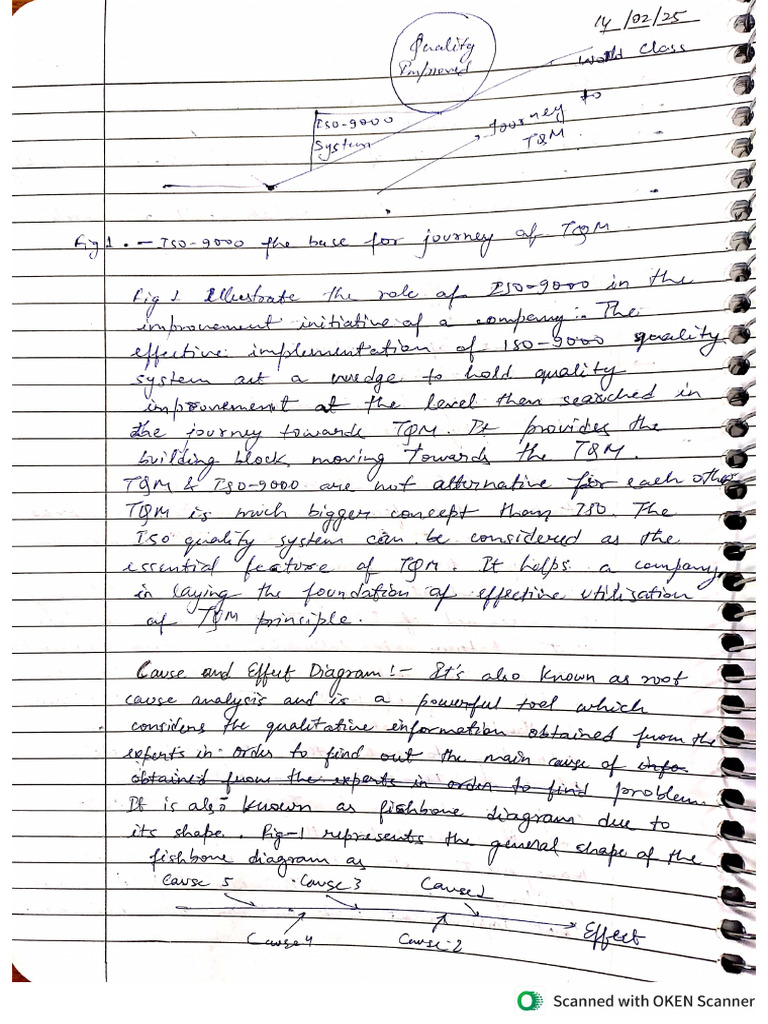 14/02/25
Quality
Improved
World Class
ISO-9000
System
Journey to
TQM
Fig 1. - ISO-9000 the base for journey of TQM
Fig 1 Illustrate the role of ISO-9000 in the
improvement initiative of a company :- The
effective implementation of ISO-9000 quality
system act a wedge to hold quality
improvement at the level then searched in
the journey towards TQM. It provides the
building block, moving Towards the TQM.
TQM & ISO-9000 are not alternative for each other
TQM is much bigger concept than ISO. The
ISO quality system can be considered as the
essential feature of TQM. It helps a company
in laying the foundation of effective utilization
of TQM principle.
Cause and Effect Diagram :- It's also known as root
cause analysis and is a powerful tool which
considers the qualitative information obtained from the
experts in order to find out the main cause of info
obtained from the experts in order to find problem.
It is also known as fishbone diagram due to
its shape. Fig-1 represents the general shape of the
fishbone diagram as
Cause 5 Cause 3 Cause 1
Effect
Cause 4 Cause-2
Scanned with OKEN Scanner